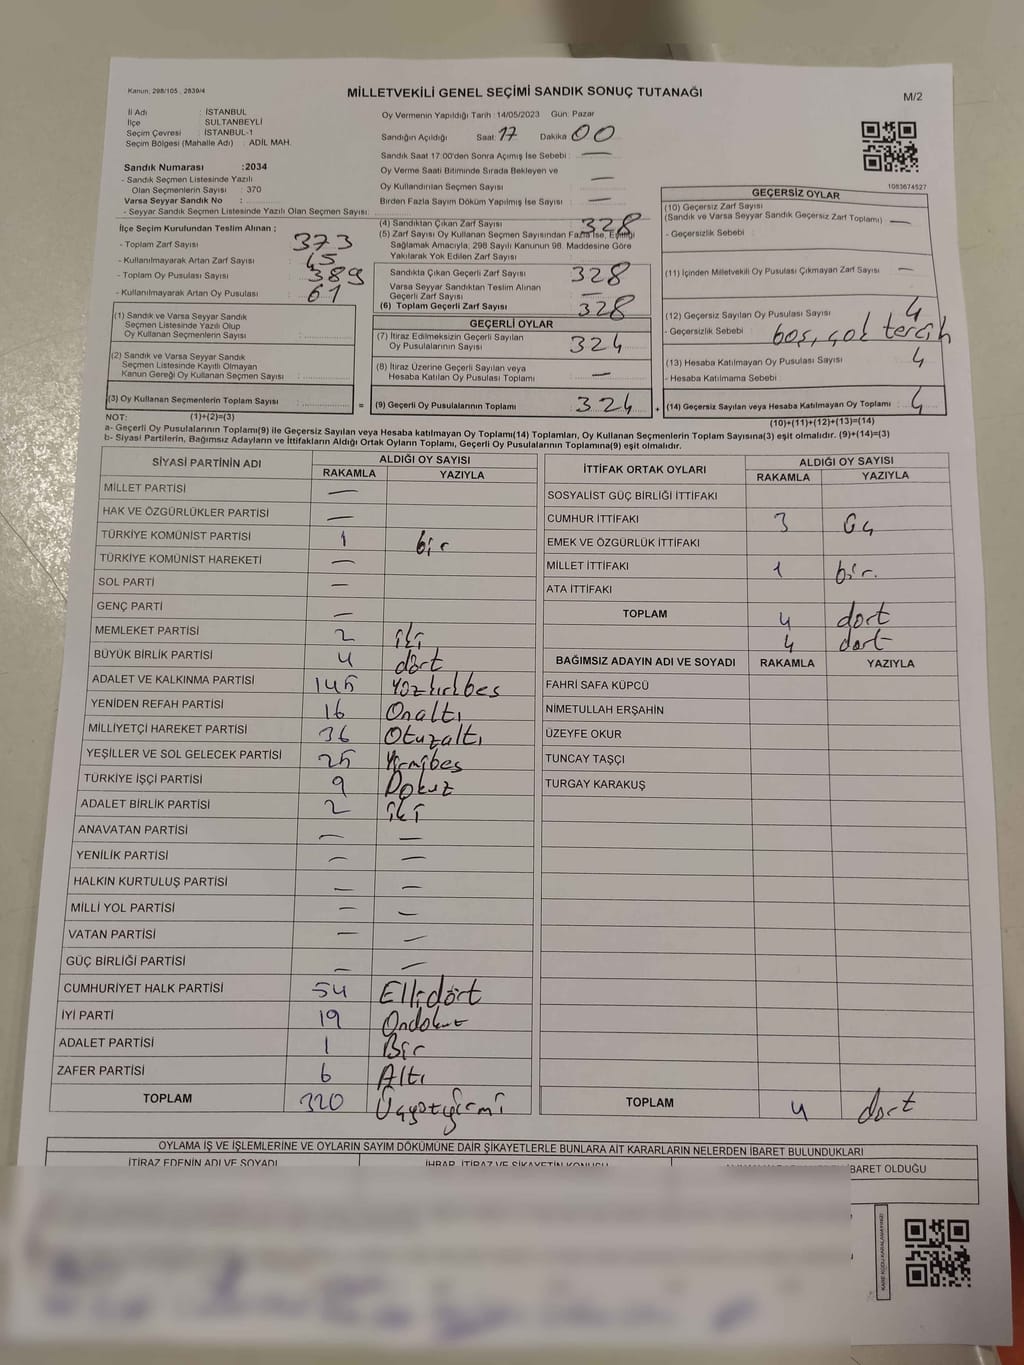 Kanun: 298/105., 2839/4
MİLLETVEKİLİ GENEL SEÇİMİ SANDIK SONUÇ TUTANAĞI
M/2
İl Adı : İSTANBUL
İlçe : SULTANBEYLİ
Seçim Çevresi : İSTANBUL-1
Seçim Bölgesi (Mahalle Adı) : ADİL MAH.
Sandık Numarası :2034
- Sandık Seçmen Listesinde Yazılı
Olan Seçmenlerin Sayısı : 370
Varsa Seyyar Sandık No :
- Seyyar Sandık Seçmen Listesinde Yazılı Olan Seçmen Sayısı:
İlçe Seçim Kurulundan Teslim Alınan ;
- Toplam Zarf Sayısı : 373
- Kullanılmayarak Artan Zarf Sayısı : 45
- Toplam Oy Pusulası Sayısı : 389
- Kullanılmayarak Artan Oy Pusulası : 61
(1) Sandık ve Varsa Seyyar Sandık
Seçmen Listesinde Yazılı Olup
Oy Kullanan Seçmenlerin Sayısı :
(2) Sandık ve Varsa Seyyar Sandık
Seçmen Listesinde Kayıtlı Olmayan
Kanun Gereği Oy Kullanan Seçmen Sayısı :
(3) Oy Kullanan Seçmenlerin Toplam Sayısı :
Oy Vermenin Yapıldığı Tarih :14/05/2023 Gün: Pazar
Sandığın Açıldığı Saat: 17 Dakika: 00
Sandık Saat 17:00'den Sonra Açımış İse Sebebi : —
Oy Verme Saati Bitiminde Sırada Bekleyen ve
Oy Kullandırılan Seçmen Sayısı : —
Birden Fazla Sayım Döküm Yapılmış İse Sayısı : —
(4) Sandıktan Çıkan Zarf Sayısı : 328
(5) Zarf Sayısı Oy Kullanan Seçmen Sayısından Fazla İse, Eşitliği
Sağlamak Amacıyla, 298 Sayılı Kanunun 98. Maddesine Göre
Yakılarak Yok Edilen Zarf Sayısı :
Sandıkta Çıkan Geçerli Zarf Sayısı : 328
Varsa Seyyar Sandıktan Teslim Alınan
Geçerli Zarf Sayısı : —
(6) Toplam Geçerli Zarf Sayısı : 328
GEÇERLİ OYLAR
(7) İtiraz Edilmeksizin Geçerli Sayılan
Oy Pusulalarının Sayısı : 324
(8) İtiraz Üzerine Geçerli Sayılan veya
Hesaba Katılan Oy Pusulası Toplamı : —
= (9) Geçerli Oy Pusulalarının Toplamı : 324
GEÇERSİZ OYLAR
1083674527
(10) Geçersiz Zarf Sayısı
(Sandık ve Varsa Seyyar Sandık Geçersiz Zarf Toplamı) : —
- Geçersizlik Sebebi :
(11) İçinden Milletvekili Oy Pusulası Çıkmayan Zarf Sayısı : —
(12) Geçersiz Sayılan Oy Pusulası Sayısı : 4
- Geçersizlik Sebebi : boş, çok tercih
(13) Hesaba Katılmayan Oy Pusulası Sayısı : 4
- Hesaba Katılmama Sebebi :
+ (14) Geçersiz Sayılan veya Hesaba Katılmayan Oy Toplamı : 4
NOT: (1)+(2)=(3)
(10)+(11)+(12)+(13)=(14)
a- Geçerli Oy Pusulalarının Toplamı(9) ile Geçersiz Sayılan veya Hesaba katılmayan Oy Toplamı(14) Toplamları, Oy Kullanan Seçmenlerin Toplam Sayısına(3) eşit olmalıdır. (9)+(14)=(3)
b- Siyasi Partilerin, Bağımsız Adayların ve İttifakların Aldığı Ortak Oyların Toplamı, Geçerli Oy Pusulalarının Toplamına(9) eşit olmalıdır.
SİYASİ PARTİNİN ADI ALDIĞI OY SAYISI
RAKAMLA YAZIYLA
MİLLET PARTİSİ —
HAK VE ÖZGÜRLÜKLER PARTİSİ —
TÜRKİYE KOMÜNİST PARTİSİ 1 bir
TÜRKİYE KOMÜNİST HAREKETİ —
SOL PARTİ —
GENÇ PARTİ —
MEMLEKET PARTİSİ 2 iki
BÜYÜK BİRLİK PARTİSİ 4 dört
ADALET VE KALKINMA PARTİSİ 145 Yüzkırkbeş
YENİDEN REFAH PARTİSİ 16 Onaltı
MİLLİYETÇİ HAREKET PARTİSİ 36 Otuzaltı
YEŞİLLER VE SOL GELECEK PARTİSİ 25 Yirmibeş
TÜRKİYE İŞÇİ PARTİSİ 9 Dokuz
ADALET BİRLİK PARTİSİ 2 iki
ANAVATAN PARTİSİ — —
YENİLİK PARTİSİ — —
HALKIN KURTULUŞ PARTİSİ — —
MİLLİ YOL PARTİSİ — —
VATAN PARTİSİ — —
GÜÇ BİRLİĞİ PARTİSİ — —
CUMHURİYET HALK PARTİSİ 54 Ellidört
İYİ PARTİ 19 Ondokuz
ADALET PARTİSİ 1 Bir
ZAFER PARTİSİ 6 Altı
TOPLAM 320 Üçyüzyirmi
İTTİFAK ORTAK OYLARI ALDIĞI OY SAYISI
RAKAMLA YAZIYLA
SOSYALİST GÜÇ BİRLİĞİ İTTİFAKI
CUMHUR İTTİFAKI 3 Üç
EMEK VE ÖZGÜRLÜK İTTİFAKI
MİLLET İTTİFAKI 1 bir.
ATA İTTİFAKI
TOPLAM 4 dort
4 dort
BAĞIMSIZ ADAYIN ADI VE SOYADI RAKAMLA YAZIYLA
FAHRİ SAFA KÜPCÜ
NİMETULLAH ERŞAHİN
ÜZEYFE OKUR
TUNCAY TAŞÇI
TURGAY KARAKUŞ
TOPLAM 4 dort
OYLAMA İŞ VE İŞLEMLERİNE VE OYLARIN SAYIM DÖKÜMÜNE DAİR ŞİKAYETLERLE BUNLARA AİT KARARLARIN NELERDEN İBARET BULUNDUKLARI
İTİRAZ EDENİN ADI VE SOYADI İHBAR, İTİRAZ VE ŞİKAYETİN KONUSU İBARET OLDUĞU